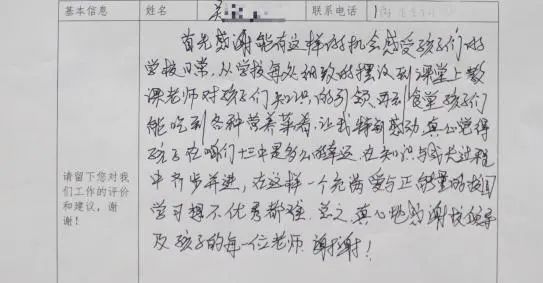 基本信息 姓名 吴 联系电话
首先感谢能有这样的机会感受孩子们的
学校日常，从学校每处细致的摆设到课堂上教
课老师对孩子们知识的引领，再到食堂孩子们
能吃到各种营养菜肴，让我特别感动，真心觉得
孩子在咱们十三中是多么的幸运，在知识与成长过程
中齐步并进，在这样一个充满爱与正能量的校园
学习想不优秀都难。总之，真心地感谢校领导
及孩子的每一位老师，谢谢！
请留下您对我
们工作的评价
和建议，谢
谢！